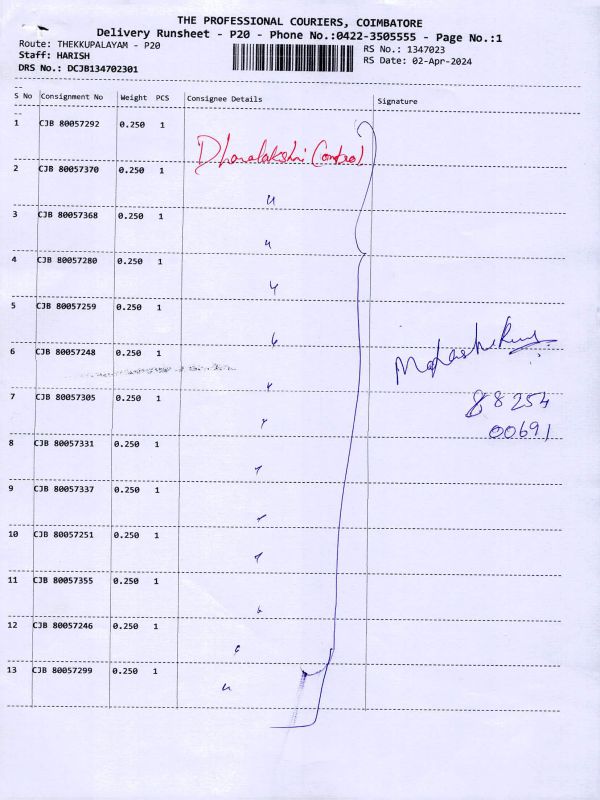 THE PROFESSIONAL COURIERS, COIMBATORE
Delivery Runsheet - P20 - Phone No.:0422-3505555 - Page No.:1
Route: THEKKUPALAYAM - P20
RS No.: 1347023
Staff: HARISH
RS Date: 02-Apr-2024
DRS No.: DCJB134702301
S No Consignment No Weight PCS Consignee Details Signature
1 CJB 80057292 0.250 1
2 CJB 80057370 0.250 1
3 CJB 80057368 0.250 1
4 CJB 80057280 0.250 1
5 CJB 80057259 0.250 1
6 CJB 80057248 0.250 1
7 CJB 80057305 0.250 1 88254
00691
8 CJB 80057331 0.250 1
9 CJB 80057337 0.250 1
10 CJB 80057251 0.250 1
11 CJB 80057355 0.250 1
12 CJB 80057246 0.250 1
13 CJB 80057299 0.250 1